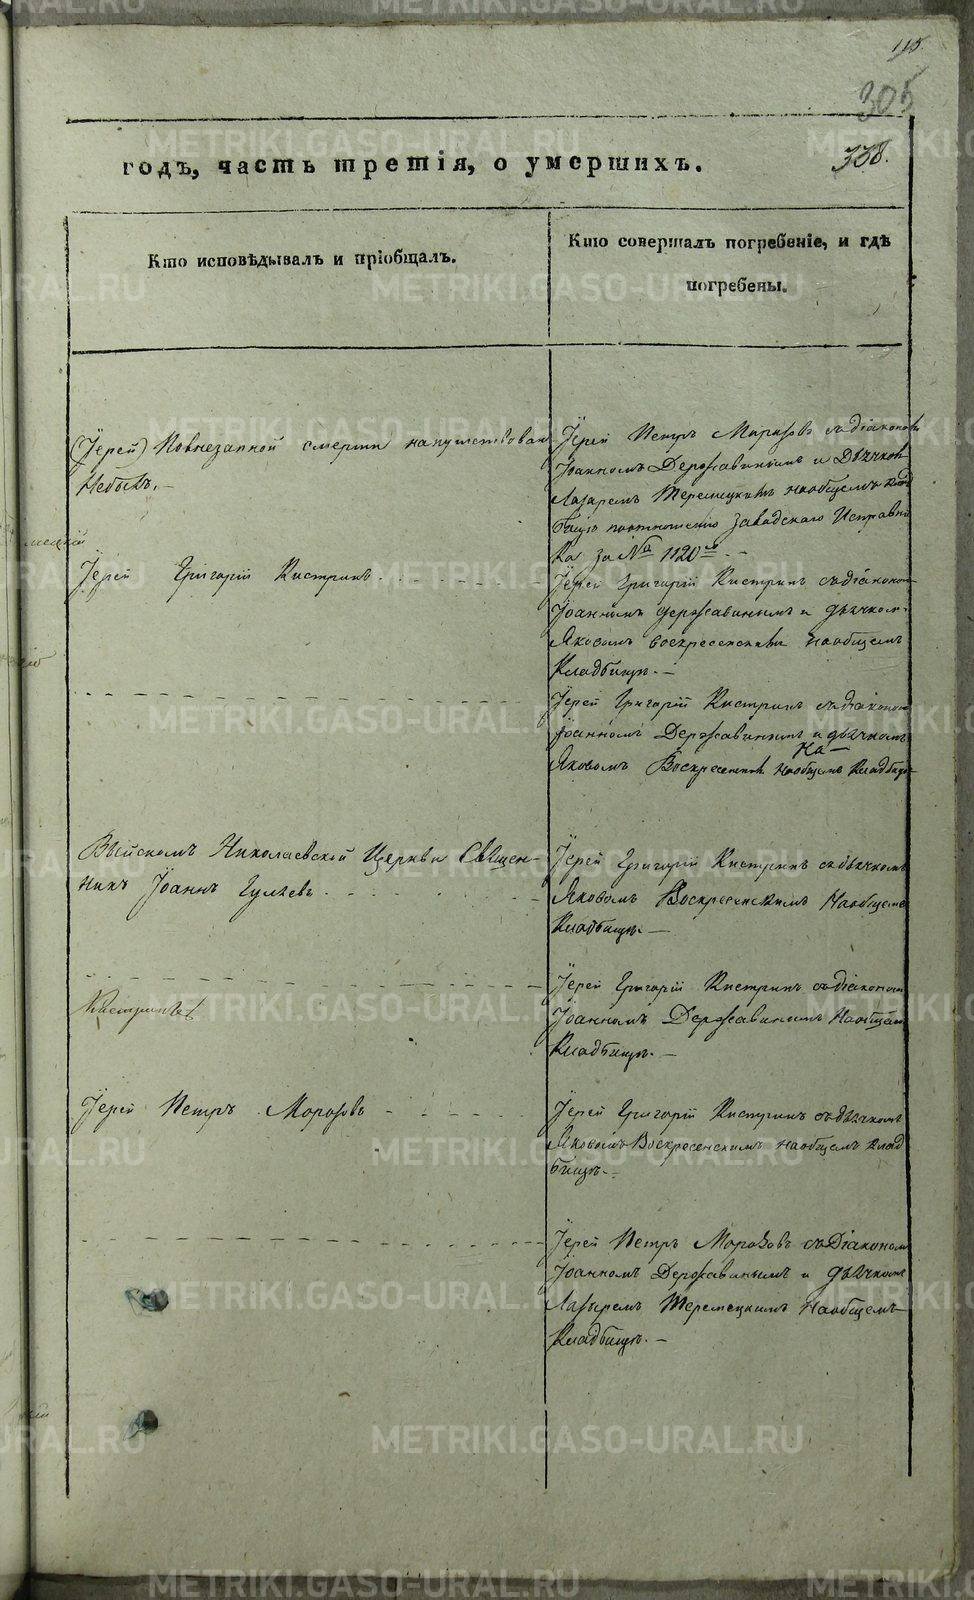 115.
305
338.
годъ, часть третія, о умершихъ.
Кто исповѣдывалъ и пріобщалъ.
Кто совершалъ погребеніе, и гдѣ
погребены.
(Іерей) Повнезапной смерти напутствован
Небылъ. —
Іерей Петръ Морозовъ съдіакономъ
Іоанномъ Державинымъ и Дьячком
Лазаремъ Теремецкимъ наобщемъ клад
бищѣ поотношенію Заводскаго Исправни
ка за № 1120 —
Іерей Григорій Кистринъ
Іерей Григорій Кистринъ съдіаконом
Іоанномъ державинымъ и дьячком
Яковомъ воскресенскимъ наобщемъ
Кладбищѣ. —
Іерей Григорій Кистринъ съдіаконом
Іоанномъ Державинымъ и дьячкомъ
На
Яковомъ Воскресенским наобщемъ Кладбищѣ
Выйскомъ Николаевской Церкви Священ-
никъ Іоаннъ Гуляевъ
Іерей Григорій Кистринъ съдьячкомъ
Яковомъ Воскресенскимъ Наобщемъ
Кладбищѣ. —
Кистринъ
Іерей Григорій Кистринъ съдіаконом
Іоанномъ Державинымъ Наобщемъ
Кладбищѣ. —
Іерей Петръ Морозовъ
Іерей Григорій Кистринъ съдьячкомъ
Яковомъ Воскресенскимъ наобщемъ клад
бищѣ. —
Іерей Петръ Морозовъ съдіакономъ
Іоанномъ Державинымъ и дьячкомъ
Лазаремъ Теремецкимъ наобщемъ
Кладбищѣ. —
METRIKI.GASO-URAL.RU